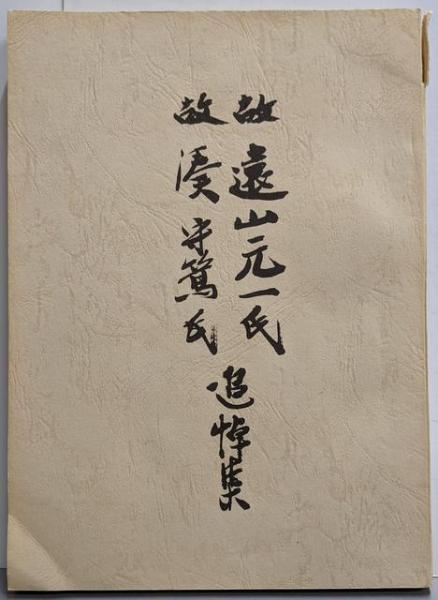 故 遠山元一氏
故 湊 守篤氏
追悼集